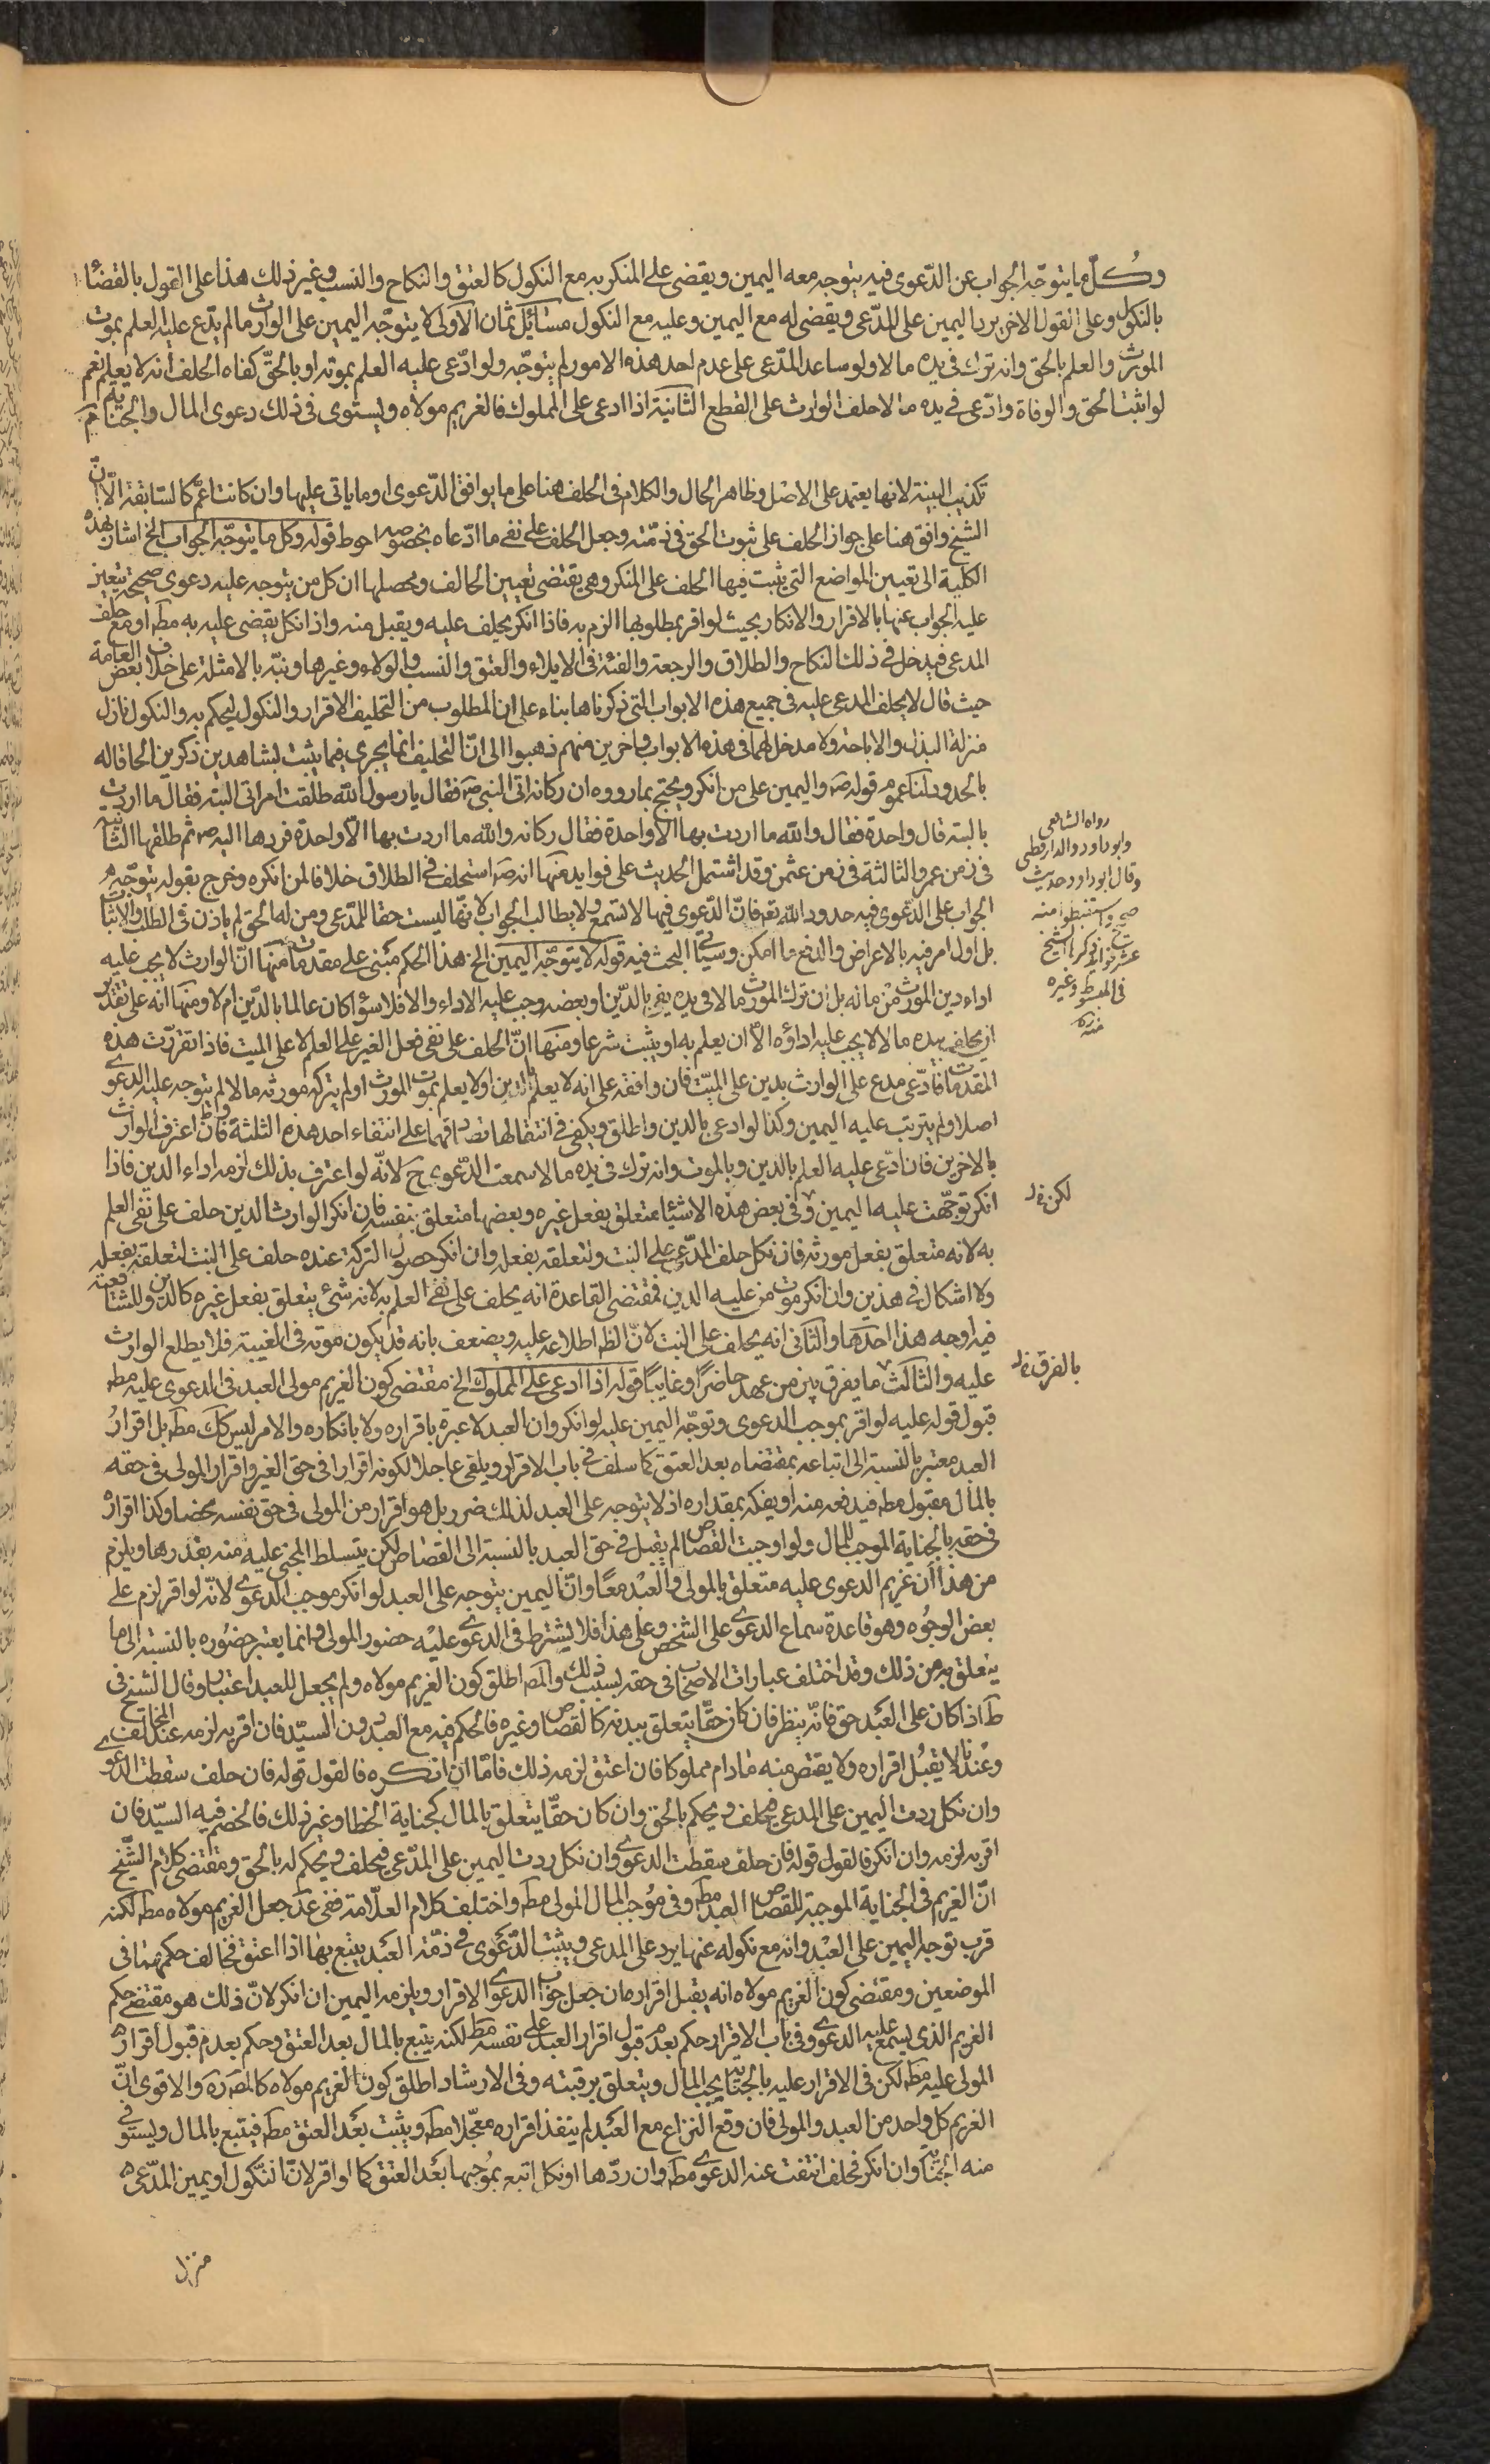 وكل ما يتوجه الجواب عن الدعوى فيه يتوجه معه اليمين ويقضى على المنكر به مع النكول كالعتق والنكاح والنسب وغير ذلك هذا على القول بالقضاء
بالنكول وعلى القول الاخر يرد اليمين على المدعى ويقضى له مع اليمين وعليه مع النكول مسائل ثمان الاولى لا يتوجه اليمين على الوارث ما لم يدع عليه العلم بموت
المورث والعلم بالحق وانه ترك فى يده مالا ولو ساعد المدعى على عدم احد هذه الامور لم يتوجه ولو ادعى عليه العلم بموته او بالحق كفاه الحلف انه لا يعلم نعم
لو اثبت الحق والوفاة وادعى فى يده مالا حلف الوارث على القطع الثانية اذا ادعى على المملوك فالغريم مولاه ويستوى فى ذلك دعوى المال والجناية
تكذيب البينة لانها يعتمد على الاصل وظاهر الحال والكلام فى الحلف هنا على ما يوافق الدعوى او ما ياتى عليها وان كانت اعم كالسابقة الا ان
الشيخ وافق هنا على جواز الحلف على ثبوت الحق فى ذمته وجعل الحلف على نفى ما ادعاه بخصوصه احوط قوله وكل ما يتوجه الجواب الخ اشار بهذه
الكلية الى تعيين المواضع التى يثبت فيها الحلف على المنكر وهى يقتضى تعيين الحالف ومحصلها ان كل من يتوجه عليه دعوى صحيحة يتعين
عليه الجواب عنها بالاقرار والانكار بحيث لو اقر بمطلوبها الزم به فاذا انكر يحلف عليه ويقبل منه واذا نكل يقضى عليه به مطه او مع حلف
المدعى فيدخل فى ذلك النكاح والطلاق والرجعة والفئة فى الايلاء والعتق والنسب والولاء وغيرها ونبه بالامثلة على خلاف بعض العامة
حيث قال لا يحلف المدعى عليه فى جميع هذه الابواب التى ذكرناها بناء على ان المطلوب من التحليف الاقرار والنكول ليحكم به والنكول نازل
منزلة البذل والاباحة ولا مدخل لهما فى هذه الابواب واخرين منهم ذهبوا الى ان التحليف انما يجرى فيما يثبت بشاهدين ذكرين الحاقا له
بالحدود لنا عموم قوله ص واليمين على من انكر ويحتج بما رووه ان ركانه اتى النبى ص فقال يا رسول الله طلقت امراتى البته فقال ما اردت
بالبته قال واحدة فقال والله ما اردت بها الا واحدة فقال ركانه والله ما اردت بها الا واحدة فردها اليه ص ثم طلقها الثانية
فى زمن عمر والثالثة فى زمن عثمن وقد اشتمل الحديث على فوايد منها انه ص استحلف فى الطلاق خلافا لمن انكره وخرج بقوله يتوجه
الجواب على الدعوى فيه حدود الله تعه فان الدعوى فيها لا تسمع ولا يطالب الجواب لانها ليست حقا للمدعى ومن له الحق لم ياذن فى الطلب والاثبات
بل اولى امر فيه بالاعراض والدفع ما امكن وسياتى البحث فيه قوله لا يتوجه اليمين الخ هذا الحكم مبنى على مقدمات منها ان الوارث لا يجب عليه
اداء دين المورث من ماله بل ان ترك المورث مالا فى يده يفى بالدين او بعضه وجب عليه الاداء والا فلا سواء كان عالما بالدين ام لا ومنها انه على تقدير
ان يخلف بيده مالا لا يجب عليه اداؤه الا ان يعلم به او يثبت شرعا ومنها ان الحلف على نفى فعل الغير على العلم لا على الميت فاذا تقررت هذه
المقدمات فادعى مدع على الوارث بدين على الميت فان وافقه على انه لا يعلم بالدين او لا يعلم بموت المورث او لم يترك مورثه مالا لم يتوجه عليه الدعوى
اصلا ولم يترتب عليه اليمين وكذا لو ادعى بالدين واطلق ويكفى فى انتقالها تصادقهما على انتفاء احد هذه الثلثة فان اعترف الوارث
بالاخرين فان ادعى عليه العلم بالدين وبالموت وانه ترك فى يده مالا سمعت الدعوى ح لانه لو اعترف بذلك لزمه اداء الدين فاذا
انكر توجهت عليه اليمين وفى بعض هذه الاشياء متعلق بفعل غيره وبعضها متعلق بنفسه فان انكر الوارث الدين حلف على نفى العلم
به لانه متعلق بفعل مورثه فان نكل حلف المدعى على البت ولتعلقه بفعله وان انكر حصول التركة عنده حلف على البت لتعلقه بفعله
ولا اشكال فى هذين وان انكر موت من عليه الدين فمقتضى القاعدة انه يحلف على نفى العلم به لانه شئ يتعلق بفعل غيره كالدين وللشافعية
فيه اوجه هذا احدها والثانى انه يحلف على البت لان الظ اطلاعه عليه ويضعف بانه قد يكون موته فى الغيبة فلا يطلع الوارث
عليه والثالث ما يفرق بين من عهد حاضرا او غايبا قوله اذا ادعى على المملوك الخ مقتضى كون الغريم مولى العبد فى الدعوى عليه مطه
قبول قوله عليه لو اقر بموجب الدعوى وتوجه اليمين عليه لو انكر وان العبد لا عبرة باقراره ولا بانكاره والامر ليس كك مطه بل اقرار
العبد معتبر بالنسبة الى اتباعه بمقتضاه بعد العتق كما سلف فى باب الاقرار ويلغى عاجلا لكونه اقرارا فى حق الغير واقرار المولى فى حقه
بالمال مقبول مطه فيدفعه منه او يفكه بمقداره اذ لا يتوجه على العبد لذلك ضرر بل هو اقرار من المولى فى حق نفسه محضا وكذا اقراره
فى حقه بالجناية الموجب للمال ولو اوجبت القصاص لم يقبل فى حق العبد بالنسبة الى القصاص لكن يتسلط المجنى عليه منه بقدرها ويلزم
من هذا ان غريم الدعوى عليه متعلق بالمولى والعبد معا وان اليمين يتوجه على العبد لو انكر موجب الدعوى لانه لو اقر لزم على
بعض الوجوه وهو قاعدة سماع الدعوى على الشخص وعلى هذا فلا يشترط فى الدعوى عليه حضور المولى وانما يعتبر حضوره بالنسبة الى ما
يتعلق به من ذلك وقد اختلف عبارات الاصحاب فى حقه بسبب ذلك والمص اطلق كون الغريم مولاه ولم يجعل للعبد اعتبارا وقال الشيخ فى
ط اذا كان على العبد حق فانه ينظر فان كان حقا يتعلق ببدنه كالقصاص وغيره فالحكم فيه مع العبد دون السيد فان اقر به لزمه عند المخالف
وعندنا لا يقبل اقراره ولا يقتص منه ما دام مملوكا فان اعتق لزمه ذلك فاما ان انكره فالقول قوله فان حلف سقطت الدعوى
وان نكل ردت اليمين على المدعى فيحلف ويحكم بالحق وان كان حقا يتعلق بالمال كجناية الخطا وغير ذلك فالخصم فيه السيد فان
اقر به لزمه وان انكر فالقول قوله فان حلف سقطت الدعوى وان نكل ردت اليمين على المدعى فيحلف ويحكم له بالحق ومقتضى كلام الشيخ
ان الغريم فى الجناية الموجبة للقصاص العبد مطه وفى موجب المال المولى مطه واختلف كلام العلامة ففى عد جعل الغريم مولاه مطه لكنه
قرب توجه اليمين على العبد وانه مع نكوله عنها يرد على المدعى ويثبت الدعوى فى ذمة العبد يتبع بها اذا اعتق فخالف حكمهما فى
الموضعين ومقتضى كون الغريم مولاه انه يقبل اقراره ان جعل جواب الدعوى الاقرار ويلزمه اليمين ان انكر لان ذلك هو مقتضى حكم
الغريم الذى يسمع عليه الدعوى وفى باب الاقرار حكم بعدم قبول اقرار العبد على نفسه مط لكنه يتبع بالمال بعد العتق وحكم بعدم قبول اقرار
المولى عليه مطه لكن فى الاقرار عليه بالجناية يجب المال ويتعلق برقبته وفى الارشاد اطلق كون الغريم مولاه كالمص ره والاقوى ان
الغريم كل واحد من العبد والمولى فان وقع النزاع مع العبد لم ينفذ اقراره معجلا مطه ويثبت بعد العتق مطه فيتبع بالمال ويستوفى
منه الجناية وان انكر فحلف انتفت عنه الدعوى مطه وان ردها او نكل اتبع بموجبها بعد العتق كما لو اقر لان النكول او يمين المدعى
منزل
رواه الشافعى
وابو داود والدارقطنى
وقال ابو داود حديث
صحيح واستنبطوا منه
عشر فوايد ذكرها الشيخ
فى المبسوط وغيره
منه ره
لكن خ ل
بالفرق خ ل